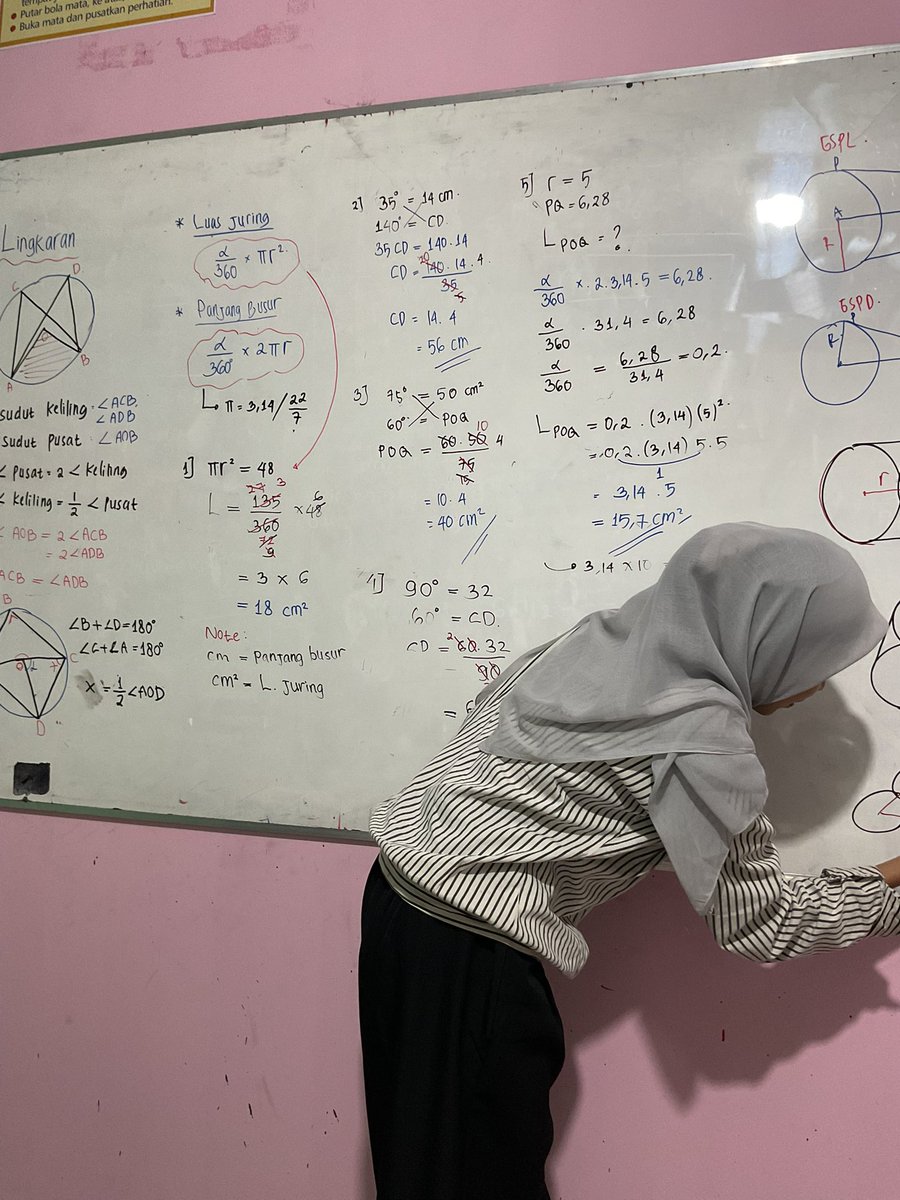 • Putar bola mata, ke
• Buka mata dan pusatkan perhatian.
Lingkaran
C
D
A
B
sudut keliling : ∠ACB
∠ADB
sudut pusat : ∠AOB
∠ pusat = 2 ∠ keliling
∠ keliling = 1/2 ∠ pusat
∠ AOB = 2 ∠ACB
= 2∠ADB
ACB = ∠ADB
B
C
D
∠B+∠D=180°
∠C+∠A=180°
x = 1/2 ∠AOD
* Luas Juring
α/360 × πr²
* Panjang Busur
α/360° × 2πr
π = 3,14 / 22/7
1] πr² = 48
27 3 6
L = 135/360 × 48
72
9
= 3 × 6
= 18 cm²
Note:
cm = Panjang busur
cm² = L. Juring
2] 35° = 14 cm.
140° = CD.
35 CD = 140.14
20
CD = 140 . 14 . 4 / 35
5
CD = 14 . 4
= 56 cm
3] 75° = 50 cm²
60° = POQ
10
POQ = 60 . 50 4 / 75
15
= 10 . 4
= 40 cm²
4] 90° = 32
60° = CD.
CD = 2 60 . 32 / 90
=
5] r = 5
PQ = 6,28
L POQ = ?
α/360 × . 2 . 3,14 . 5 = 6,28 .
α/360 . 31,4 = 6,28
α/360 = 6,28/31,4 = 0,2 .
L POQ = 0,2 . (3,14) (5)²
= 0,2 . (3,14) 5 . 5
1
= 3,14 . 5
= 15,7 cm²
3,14 × 10
GSPL
P
A
R
GSPD
P
R
r